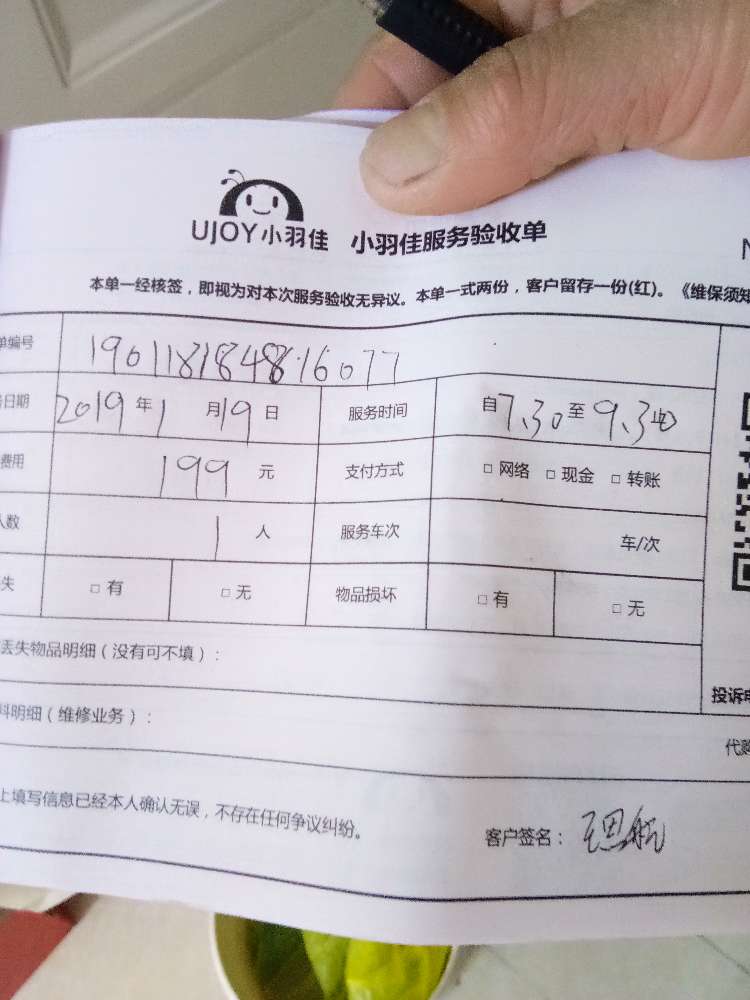 UJOY小羽佳 小羽佳服务验收单
N
本单一经核签，即视为对本次服务验收无异议。本单一式两份，客户留存一份(红)。《维保须知
单编号 190118184816077
日期 2019年1月19日 服务时间 自7.30至9.30
费用 199元 支付方式 □ 网络 □ 现金 □ 转账
人数 1人 服务车次 车/次
失 □ 有 □ 无 物品损坏 □ 有 □ 无
丢失物品明细（没有可不填）：
料明细（维修业务）：
投诉电
代购
上填写信息已经本人确认无误，不存在任何争议纠纷。
客户签名：王思航